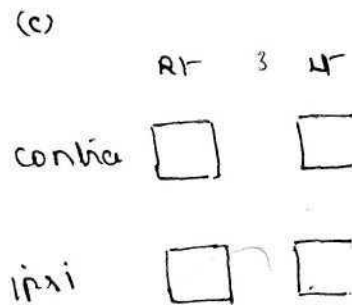 (c)
Rt 3 Lt
contra
ipsi